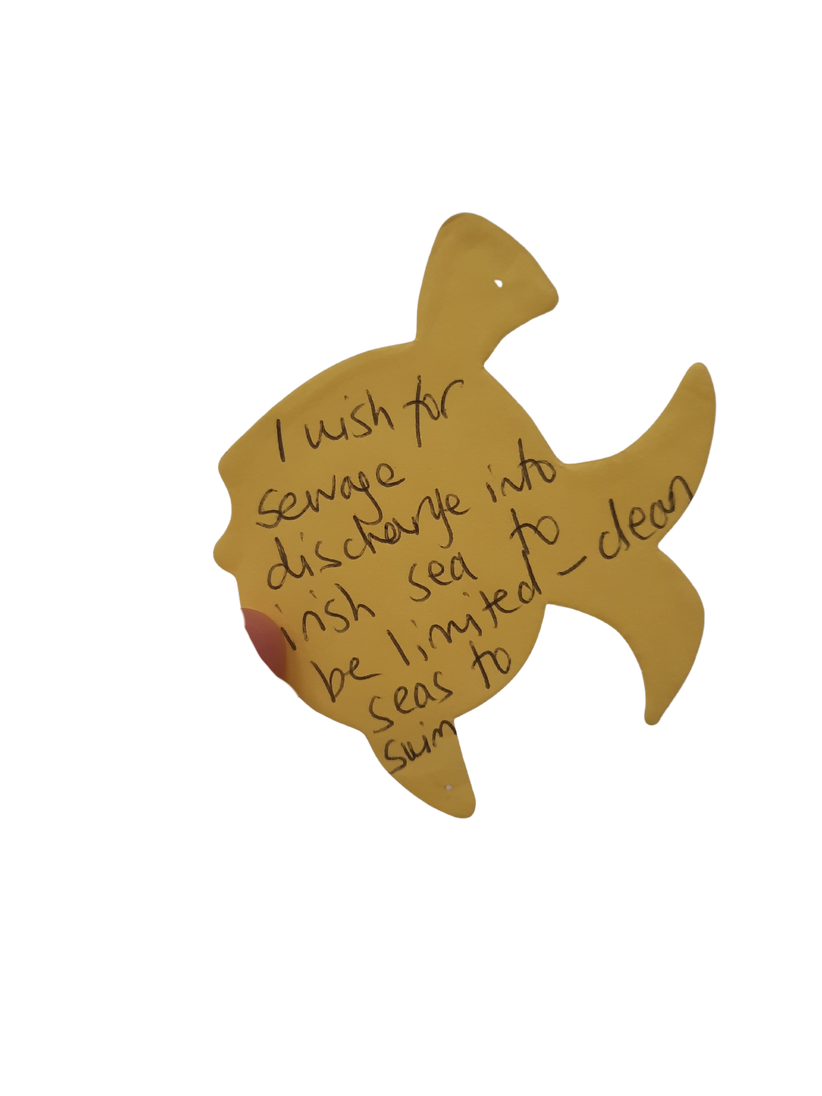 I wish for
sewage
discharge into
irish sea to
be limited - clean
seas to
swim